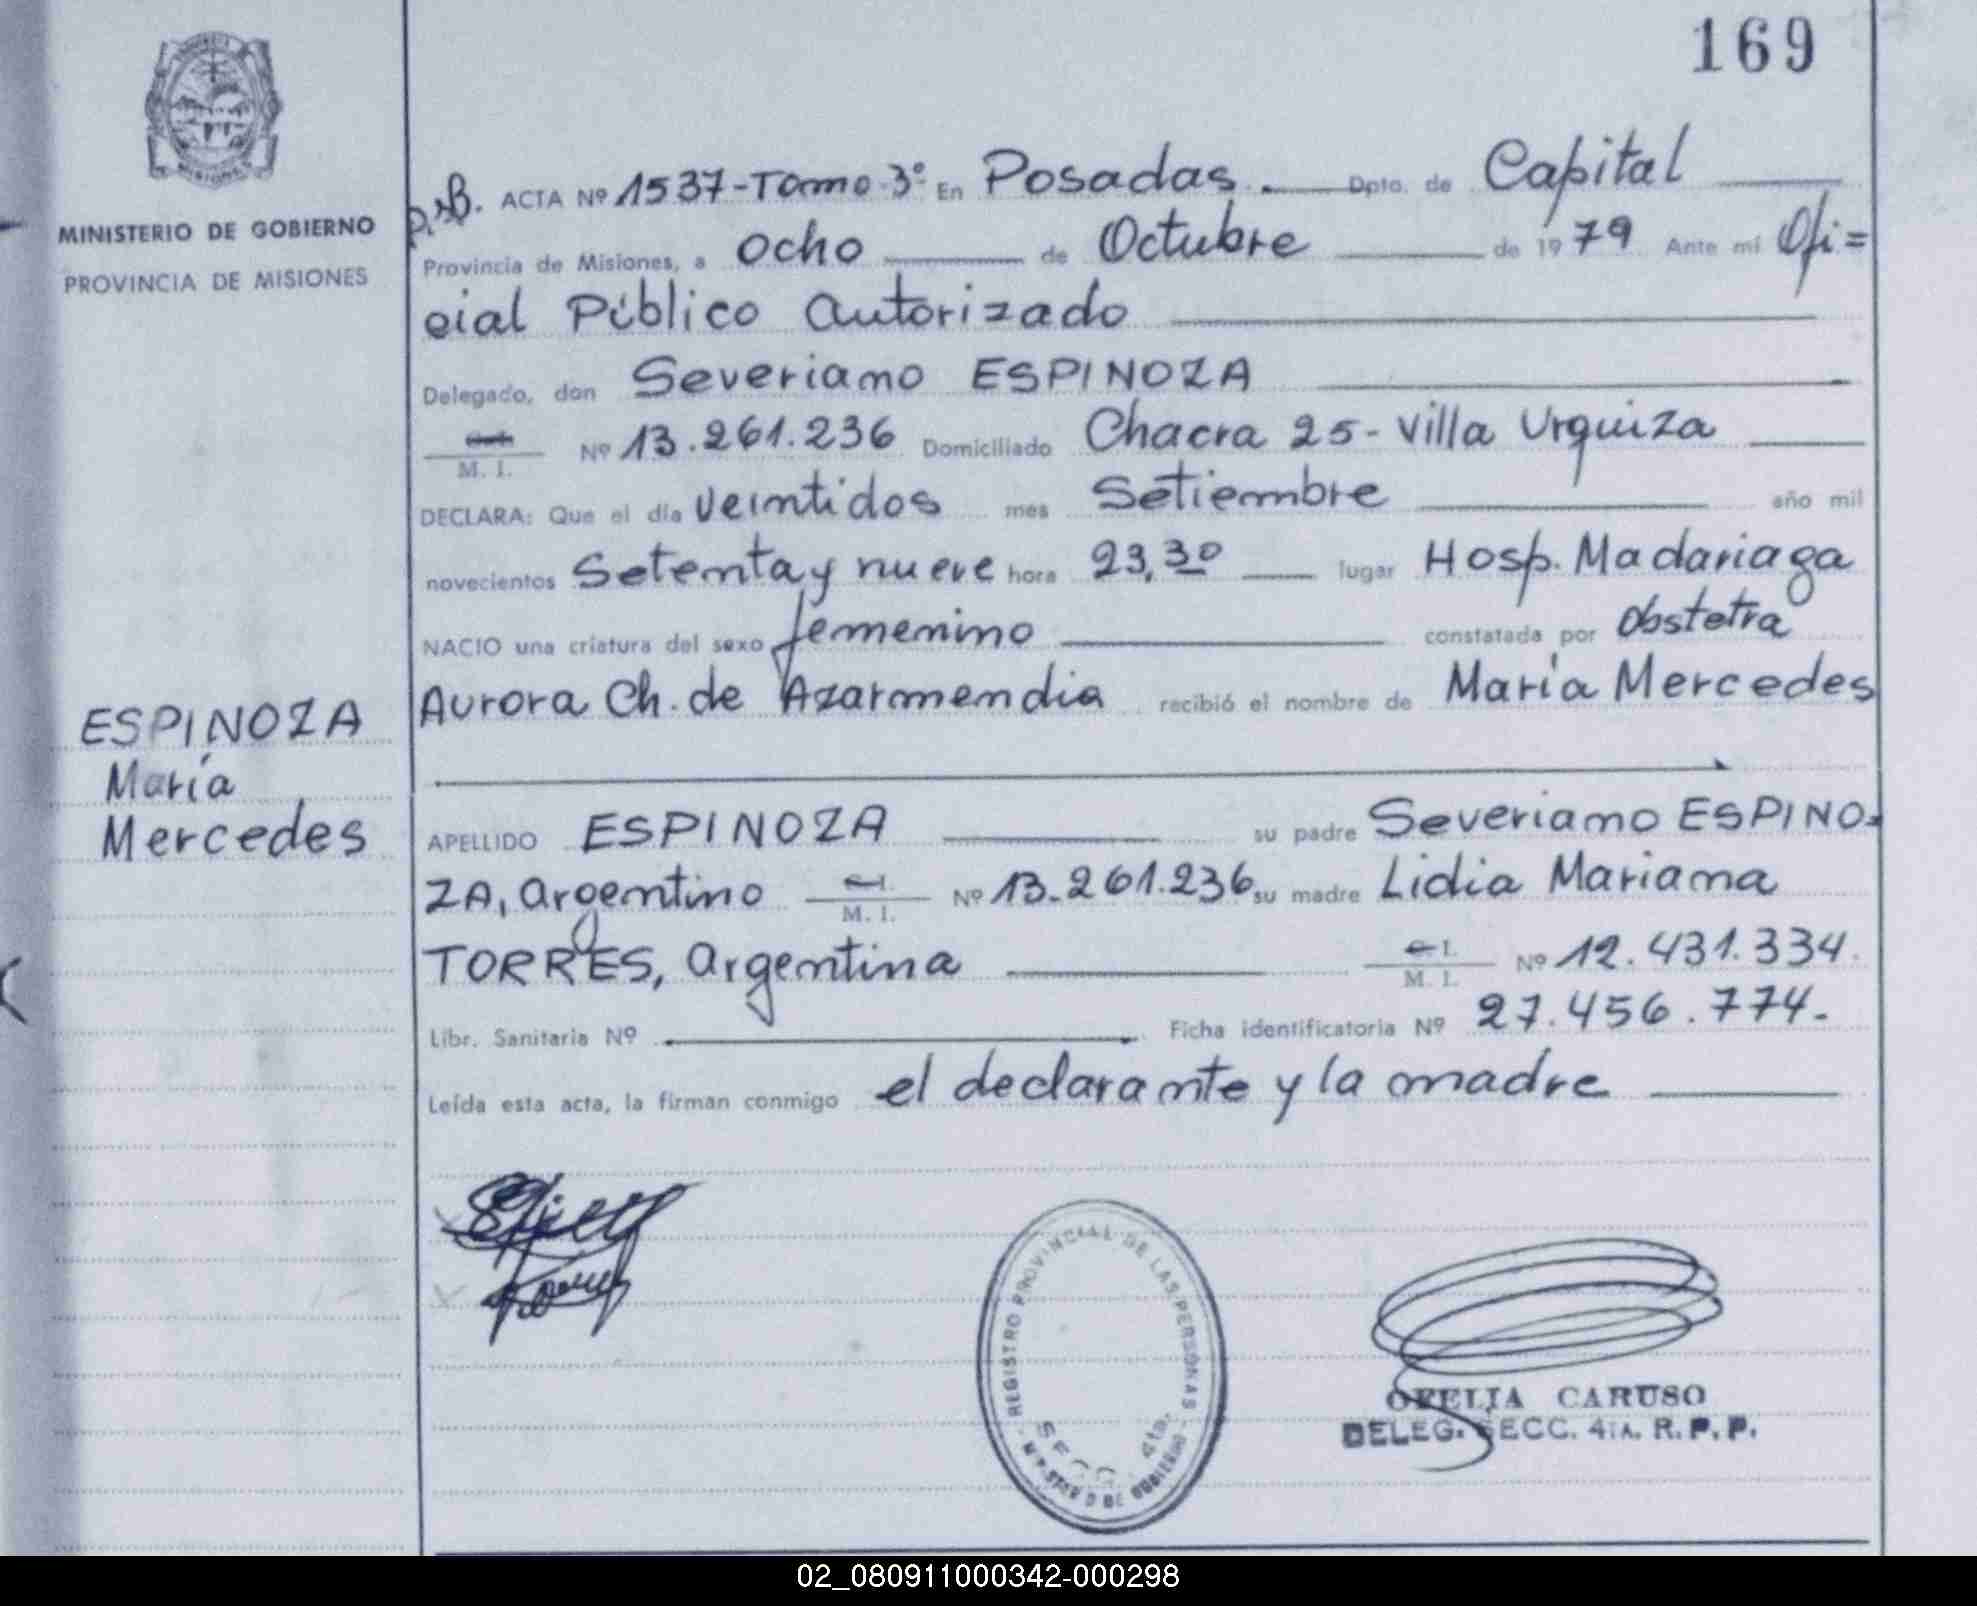 169
MINISTERIO DE GOBIERNO
PROVINCIA DE MISIONES
ACTA Nº 1537-Tomo 3º En Posadas. Dpto. de Capital
Provincia de Misiones, a ocho de Octubre de 1979 Ante mi Ofi=
cial Público Autorizado
Delegado, don Severiano ESPINOZA
M. I. Nº 13.261.236 Domiciliado Chacra 25- Villa Urquiza
DECLARA: Que el día veintidos mes Setiembre año mil
novecientos Setenta y nueve hora 23,30 lugar Hosp. Madariaga
NACIO una criatura del sexo femenino constatada por Obstetra
Aurora Ch. de Azarmendia recibió el nombre de María Mercedes
ESPINOZA
María
Mercedes
APELLIDO ESPINOZA su padre Severiano ESPINO-
ZA, argentino C.I. M. I. Nº 13.261.236 su madre Lidia Mariana
TORRES, argentina C.I. M. I. Nº 12.431.334.
Libr. Sanitaria Nº Ficha identificatoria Nº 27.456.774.-
Leída esta acta, la firman conmigo el declarante y la madre
REGISTRO PROVINCIAL DE LAS PERSONAS
SECC. 4ta.
MINISTERIO DE GOBIERNO
OFELIA CARUSO
DELEG. SECC. 4TA. R. P. P.
02_080911000342-000298